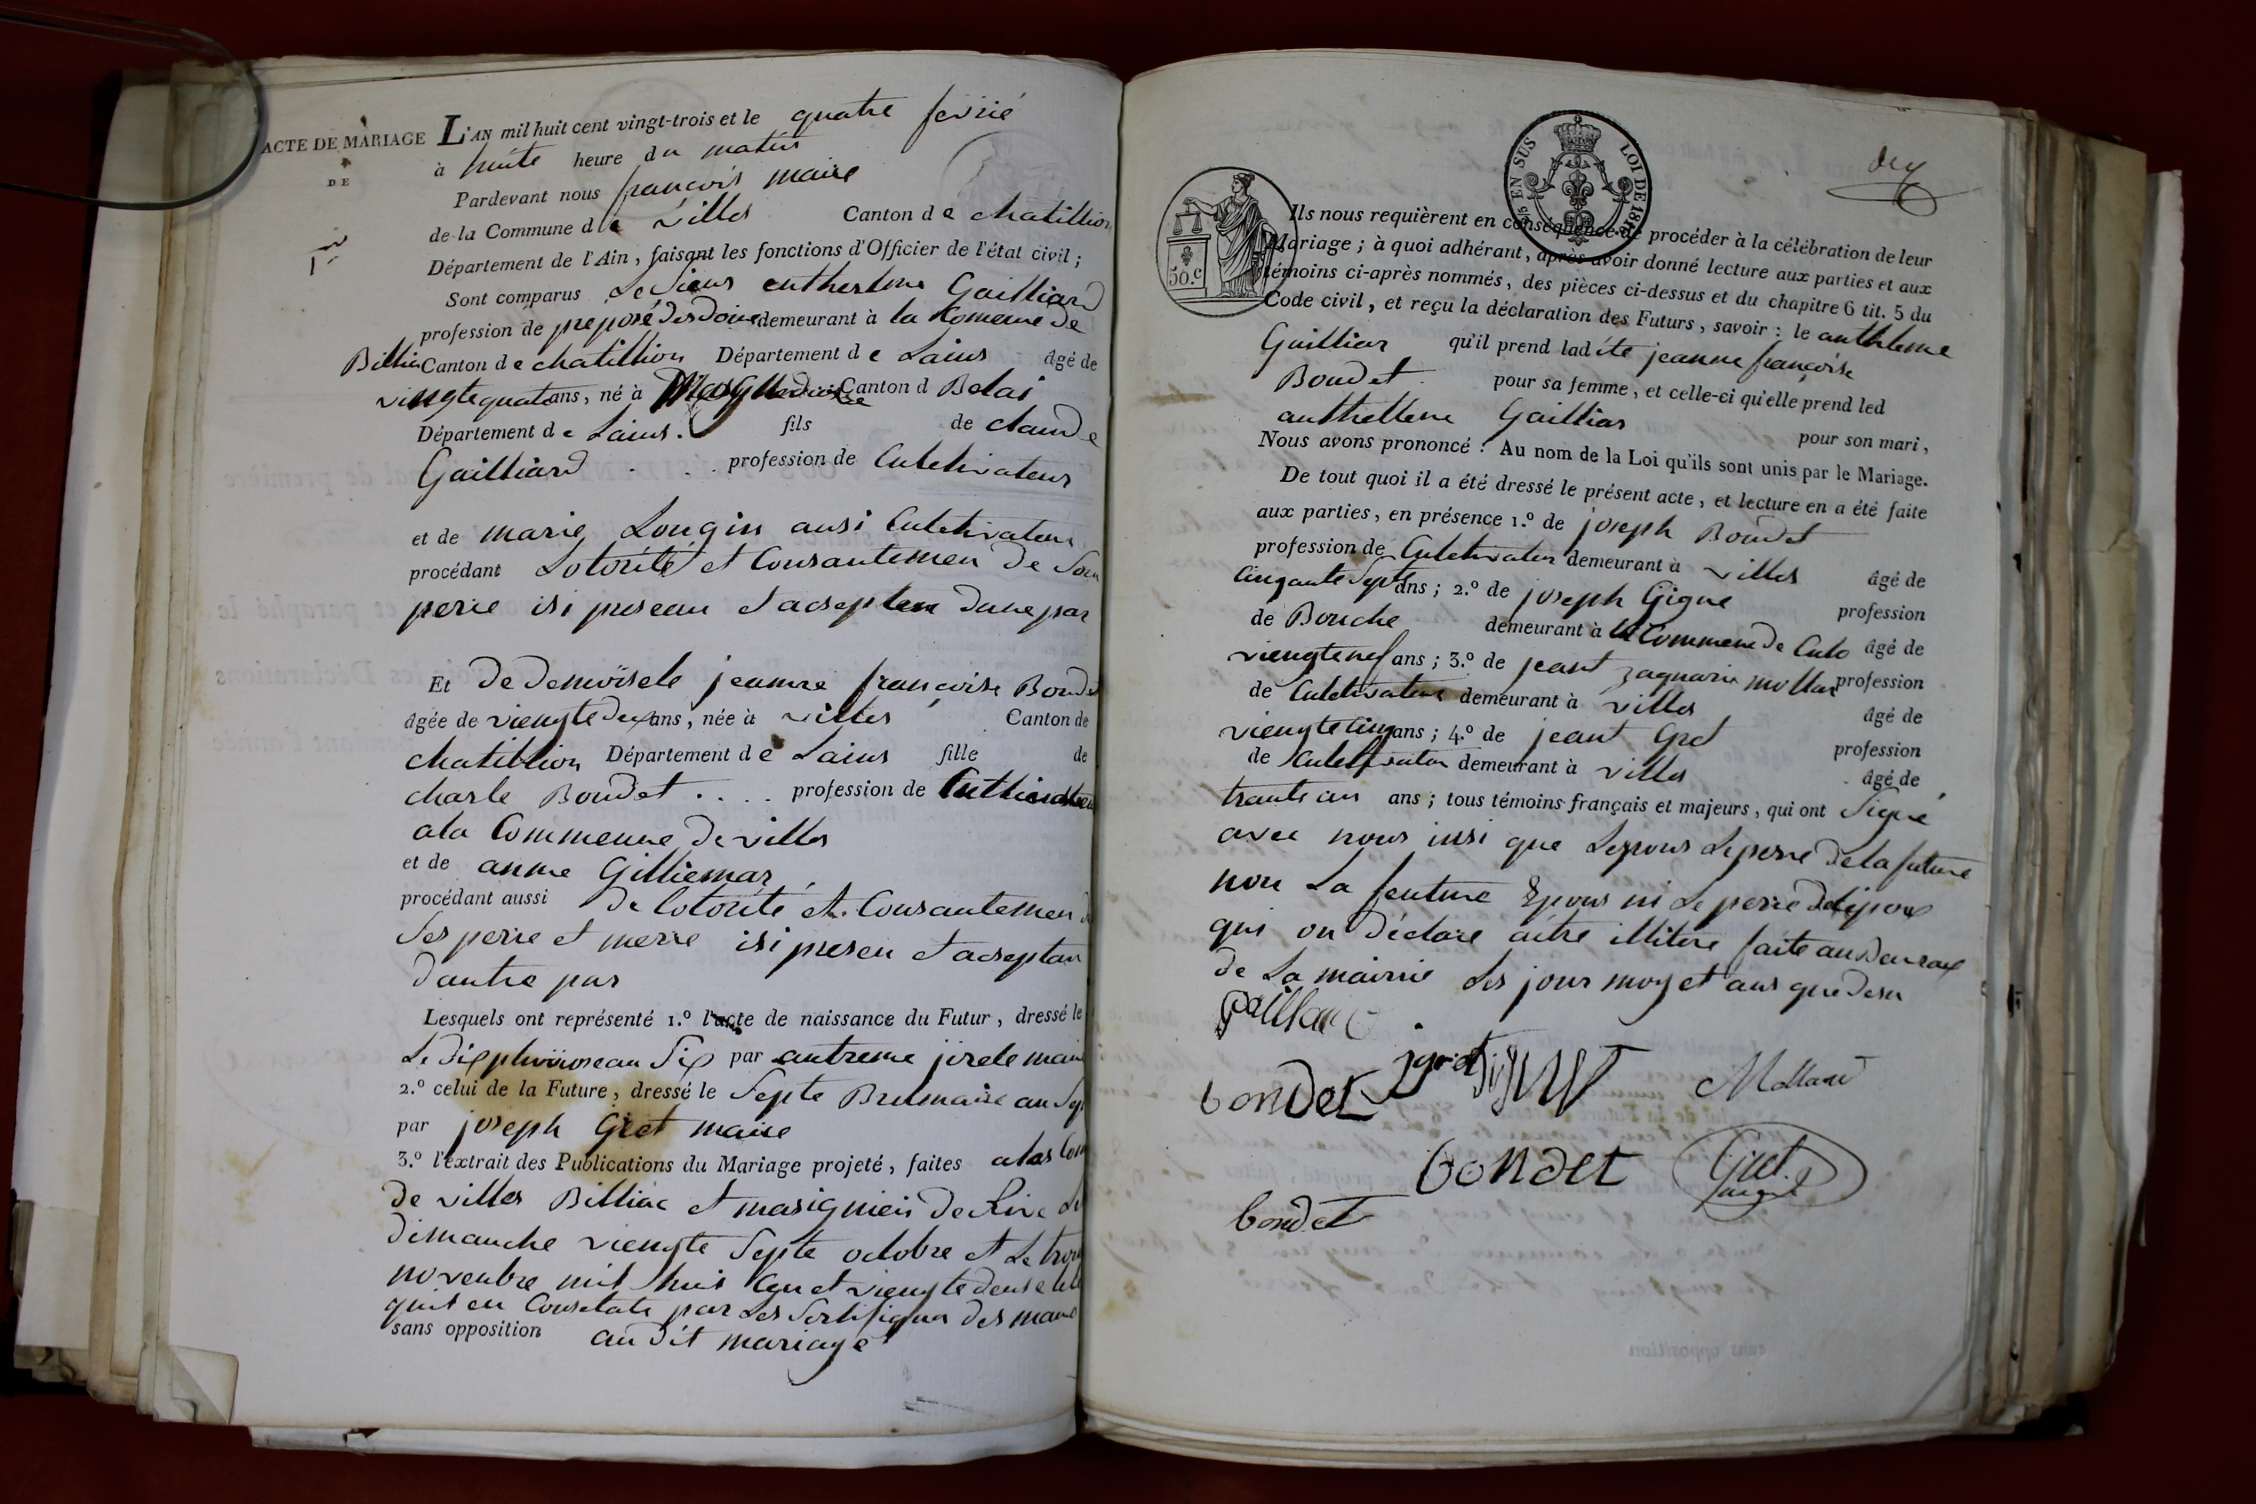 ACTE DE MARIAGE
DE
L'AN mil huit cent vingt-trois et le quatre fevrié
à huite heure du matin
Pardevant nous françois maire
de la Commune de villes Canton de chatillion
Département de l'Ain, faisant les fonctions d'Officier de l'état civil;
Sont comparus Le Sieur entherlme Gailliard
profession de preposé des doine demeurant à la Comeune de
Billia Canton de chatillion Département de Lains âgé de
vingte quate ans, né à Canton d Belai
Département de Lains. fils de claude
Gailliard profession de Cultivateur
et de marie Lougin ausi Culetivateur
procédant Lotorité et Consantemen de Son
perre isi preseau et acseptan dune par
Et de demoisele jeanne françoise Boudet
âgée de viengte deux ans, née à villes Canton de
chatillion Département de Lains fille de
charle Boudet . . . . profession de
ala Commeune de villes
et de anne Gilliemar
procédant aussi de lotorité et Consantemen de
Ses perre et merre isi presen et acseptan
dautre par
Lesquels ont représenté 1.º l'acte de naissance du Futur, dressé le
Le dix pluvioseau Six par autreme jirele maire
2.º celui de la Future, dressé le Septe Brumaire an Sept
par joseph Gret maire
3.º l'extrait des Publications du Mariage projeté, faites alas Com
de villes Billiac et masignieu de Rive Le
dimanche viengte Septe octobre et Le trois
novenbre mil huis Cen et viengte deus
quis en Consetate par Les Sertifiqua des maire
sans opposition au dit mariage
dix
5e EN SUS LOI DE 1816
50.c
Ils nous requièrent en conséquence de procéder à la célébration de leur
Mariage; à quoi adhérant, après avoir donné lecture aux parties et aux
témoins ci-après nommés, des pièces ci-dessus et du chapitre 6 tit. 5 du
Code civil, et reçu la déclaration des Futurs, savoir: le anthleme
Gailliar qu'il prend ladite jeanne françoise
Boudet pour sa femme, et celle-ci qu'elle prend led
anthelleme Gailliar pour son mari,
Nous avons prononcé: Au nom de la Loi qu'ils sont unis par le Mariage.
De tout quoi il a été dressé le présent acte, et lecture en a été faite
aux parties, en présence 1.º de joseph Boudet
profession de Culetivateur demeurant à villes âgé de
Cinqante Septe ans; 2.º de joseph Gigue profession
de Bouche demeurant à la Commene de Culo âgé de
viengte nef ans; 3.º de jeant zaquarie mollar profession
de Culetivateur demeurant à villes âgé de
viengte Cinq ans; 4.º de jeant Gret profession
de Culetivateur demeurant à villes âgé de
trante un ans; tous témoins français et majeurs, qui ont Signé
avec nous insi que Lepous Leperre de la future
non La feuture Epous ni Le perre delepoux
qui on déclare aitre illitere faite au Beuraux
de La mairie Les jour moy et ans que desu
Gaillard
bondet jgret Mollard
bondet Gret
bondet